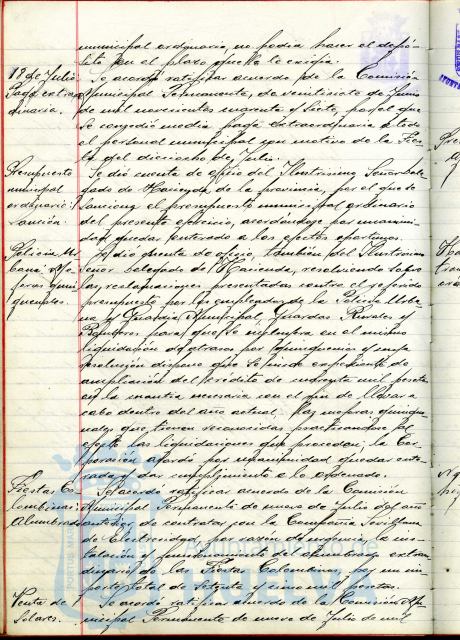 municipal ordinario, no podía hacer el depó-
sito en el plazo que se le exigía.
18 de Julio Se acordó ratificar acuerdo de la Comisión
Paga extraor- Municipal Permanente, de veintisiete de Junio
dinaria. de mil novecientos cuarenta y siete, por el que
se concedió media paga extraordinaria a todo
el personal municipal con motivo de la Fies-
ta del dieciocho de Julio.
Presupuesto Se dió cuenta de oficio del Ilustrísimo Señor Dele-
municipal gado de Hacienda de la provincia, por el que se
ordinario: sanciona el presupuesto municipal ordinario
Sanción. del presente ejercicio, acordándose por unanimi-
dad quedar enterado a los efectos oportunos.
Policía Ur- Se dió cuenta de oficio, también del Ilustrísimo
bana: Señor Delegado de Hacienda, resolviendo sobre
quin- las reclamaciones presentadas contra el referido
quenales. presupuesto por los empleados de la Policía Urba-
na y Guardia Municipal, Guardas Rurales y
Bomberos para que se incluyera en el mismo
liquidación de atrasos por quinquenios y cuya
resolución dispone que se inicie expediente de
ampliación del crédito de mil pesetas
en la cuantía necesaria con el fin de llevar a
cabo dentro del año actual, las mejoras quinque-
nales que tienen reconocidas practicándose al
efecto las liquidaciones que procedan; la Cor-
poración acordó por unanimidad quedar ente-
rada y dar cumplimiento a lo ordenado.
Fiestas Co- Se acordó ratificar acuerdo de la Comisión
lombinas: Municipal Permanente de nueve de Julio del año
Alumbrado anterior, de contratar con la Compañía Sevillana
de Electricidad, por razón de urgencia, la ins-
talación y funcionamiento de alumbrado extraor-
dinario de las Fiestas Colombinas por un im-
porte total de setenta y cinco mil pesetas.
Venta de Se acordó ratificar acuerdo de la Comisión Mu-
Solares. nicipal Permanente de nueve de Julio de mil
Ayuntamiento de
HUELVA